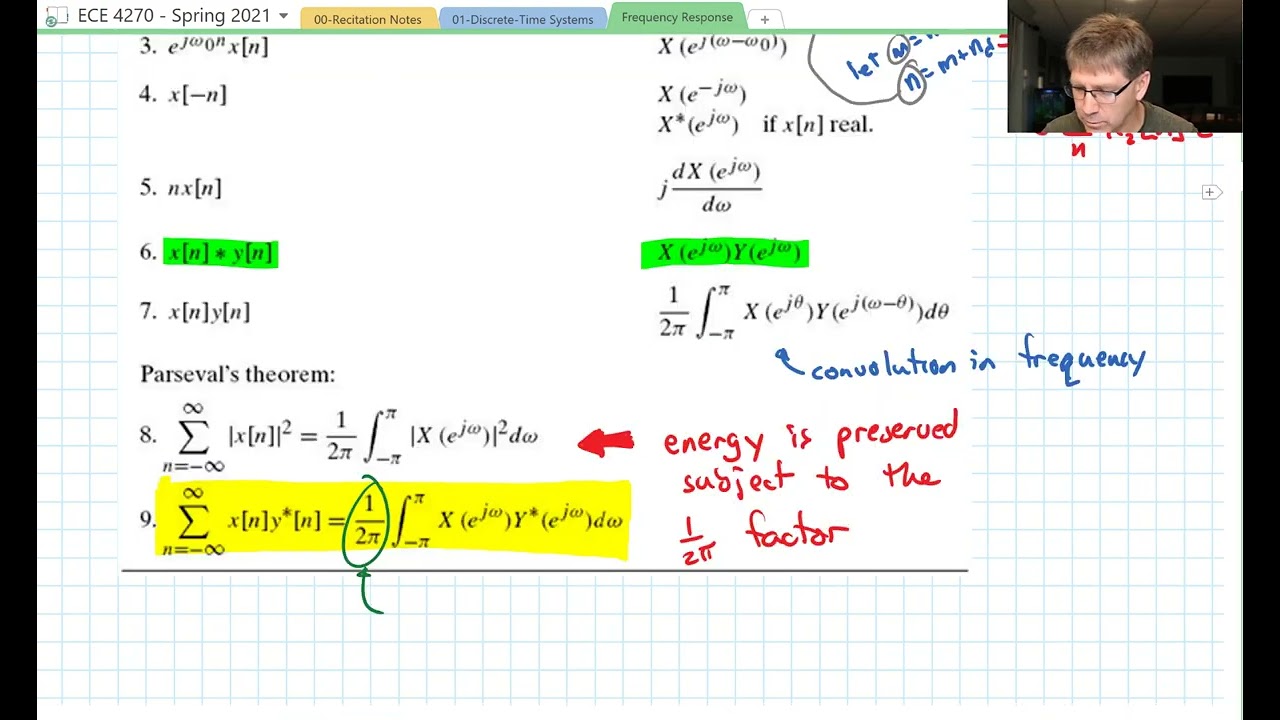 ECE 4270 - Spring 2021
00-Recitation Notes
01-Discrete-Time Systems
Frequency Response
3. e^{jω0n}x[n] X(e^{j(ω−ω0)})
let m =
n = m+nd =
4. x[−n] X(e^{−jω})
X*(e^{jω}) if x[n] real.
n
5. nx[n] j dX(e^{jω})/dω
6. x[n] ∗ y[n] X(e^{jω})Y(e^{jω})
7. x[n]y[n] 1/2π ∫_{−π}^{π} X(e^{jθ})Y(e^{j(ω−θ)})dθ
convolution in frequency
Parseval's theorem:
8. ∑_{n=−∞}^{∞} |x[n]|² = 1/2π ∫_{−π}^{π} |X(e^{jω})|²dω
energy is preserved
subject to the
1/2π factor
9. ∑_{n=−∞}^{∞} x[n]y*[n] = 1/2π ∫_{−π}^{π} X(e^{jω})Y*(e^{jω})dω